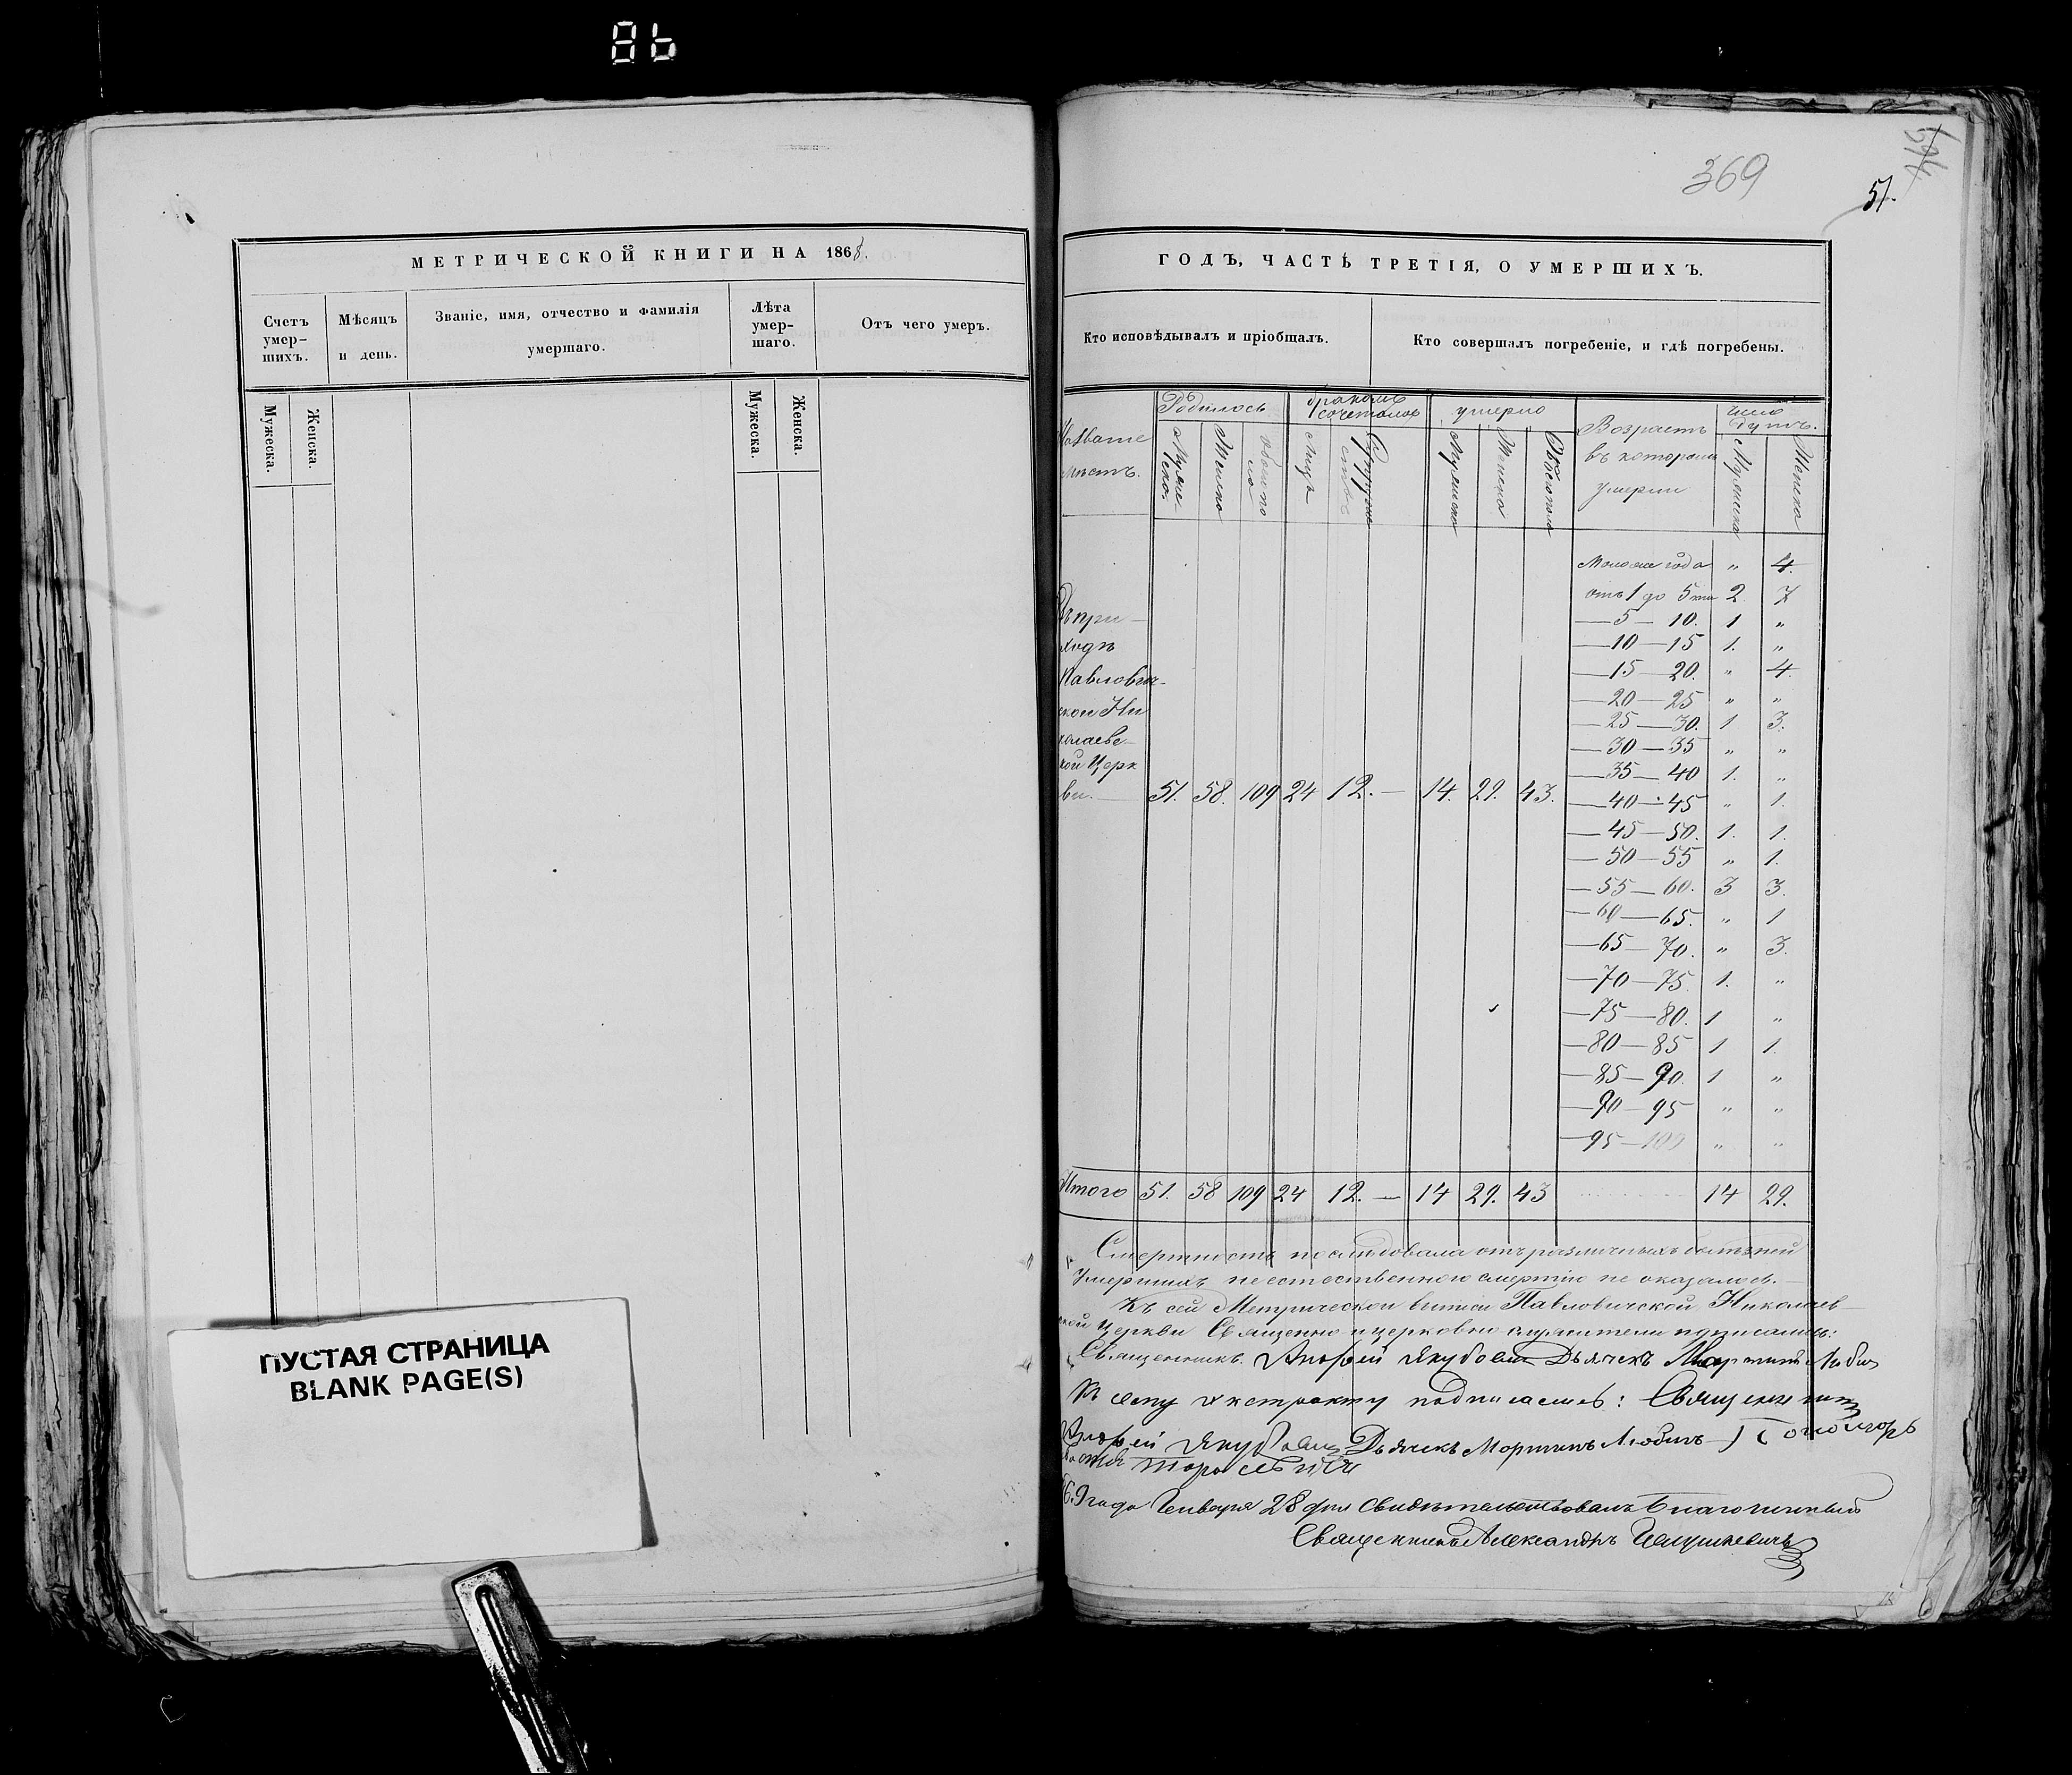 86
МЕТРИЧЕСКОЙ КНИГИ НА 1868.
Счетъ умер-шихъ.
Мѣсяцъ и день.
Званіе, имя, отчество и фамилія умершаго.
Лѣта умер-шаго.
Отъ чего умеръ.
Мужеска.
Женска.
Мужеска.
Женска.
ПУСТАЯ СТРАНИЦА
BLANK PAGE(S)
369
51.
ГОДЪ, ЧАСТЬ ТРЕТІЯ, О УМЕРШИХЪ.
Кто исповѣдывалъ и пріобщалъ.
Кто совершалъ погребеніе, и гдѣ погребены.
Названіе мѣстъ.
Родилось
бракомъ сочеталось
умерло
Возрастъ въ которомъ умерли
число душъ.
Мужеска
Женска
Обоего пола
Лицъ
Супружествъ
Мужеска
Женска
Обоего пола
Мужеска
Женска
Моложе года " 4.
отъ 1 до 5 2. 7
— 5 — 10. 1 "
— 10 — 15 1. "
— 15 — 20. " 4.
— 20 — 25 " "
— 25 — 30. 1 3.
— 30 — 35 " "
— 35 — 40 1. "
— 40 — 45 " 1.
— 45 — 50. 1. 1.
— 50 — 55 " 1.
— 55 — 60. 3 3.
— 60 — 65. " 1
— 65 — 70. " 3.
— 70 — 75 1. "
— 75 — 80. 1 "
— 80 — 85 1 1.
— 85 — 90. 1 "
— 90 — 95 " "
— 95 — 100 " "
Въ при-
ходѣ
Павлович-
ской Ни
колаевс-
кой Церк
ви. — 51. 58. 109 24 12. — 14. 29. 43.
Итого 51. 58 109 24 12. — 14 29. 43 14 29.
Смертность послѣдовала отъ различныхъ болѣзней
Умершихъ неестественною смертію не оказалось. —
Къ сей Метрической выписи Павловичской Николаев-
ской Церкви Священно и церковно служители подписались:
Священникъ Андрей Якубовичъ Дьячекъ Мартинъ
Къ сему экстракту подписались: Священникъ
Андрей Якубовичъ Дьячекъ Мартинъ Пономарь
9 года Генваря 28 дня свидѣтельствовалъ Благочинный
Священникъ Александръ